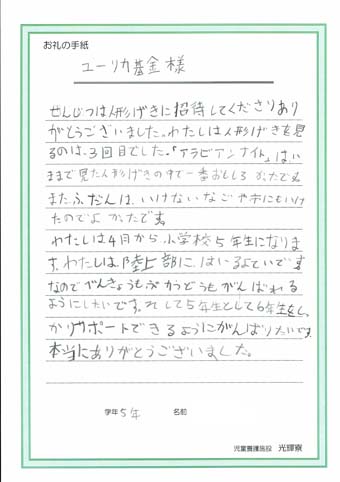 お礼の手紙
ユーリカ基金様
せんじつは人形げきに招待してくださりあり
がとうございました。わたしは人形げきを見
るのは、3回目でした。「アラビアンナイト」はい
ままで見た人形げきの中で一番おもしろかったです。
またふだんは、いけないなごや市にもいけ
たのでよかったです。
わたしは4月から小学校5年生になりま
す。わたしは、陸上部にはいるよていです
なのでべんきょうもぶかつどうもがんばれる
ようにしたいです。そして5年生として6年生をしっ
かりサポートできるようにがんばりたいです。
本当にありがとうございました。
学年 5年 名前
児童養護施設 光輝寮